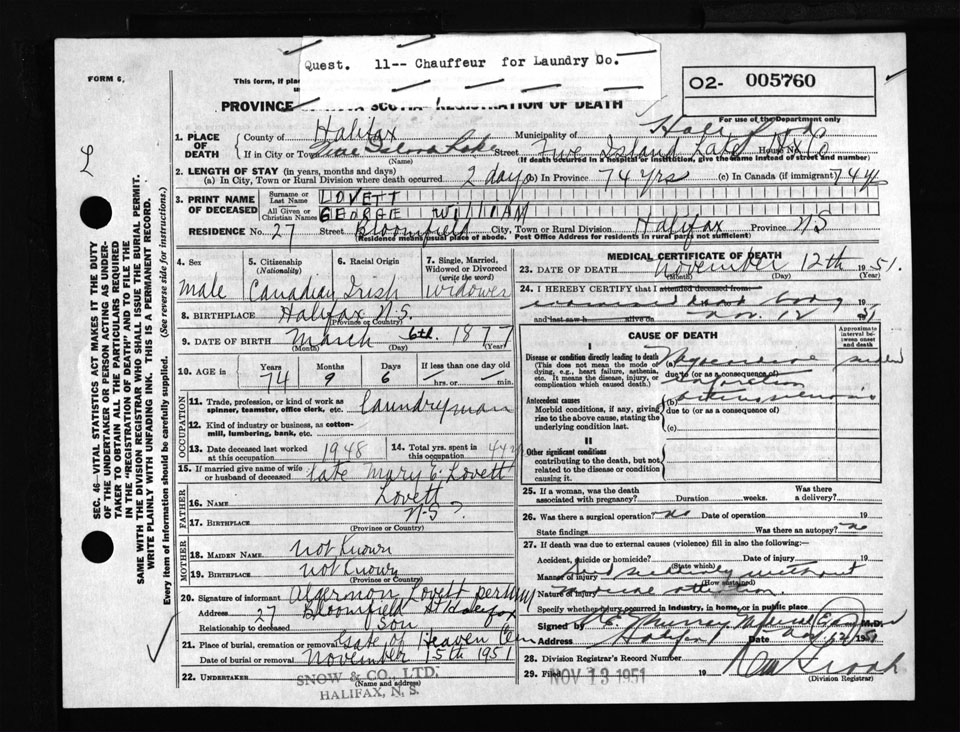 FORM 6.
Quest. 11-- Chauffeur for Laundry Do.
This form, if plac
O2- 005760
PROVINCE NOVA SCOTIA REGISTRATION OF DEATH
For use of the Department only
1. PLACE OF DEATH
County of Halifax Municipality of Halifax
If in City or Town Five Island Lake Street Five Island Lake House No. Hx Co
(Name) (If death occurred in a hospital or institution, give the name instead of street and number)
2. LENGTH OF STAY (in years, months and days)
(a) In City, Town or Rural Division where death occurred 2 days (b) In Province 74 yrs (c) In Canada (if immigrant) 74 y
3. PRINT NAME OF DECEASED
Surname or Last Name LOVETT
All Given or Christian Names GEORGE WILLIAM
RESIDENCE No. 27 Street Bloomfield City, Town or Rural Division Halifax Province NS
Residence means usual place of abode. Post Office Address for residents in rural parts not sufficient)
4. Sex
male
5. Citizenship (Nationality)
Canadian
6. Racial Origin
Irish
7. Single, Married, Widowed or Divorced (write the word)
widower
8. BIRTHPLACE Halifax N.S.
(Province or Country)
9. DATE OF BIRTH March 6th. 1877
(Month) (Day) (Year)
10. AGE in Years Months Days If less than one day old
74 9 6 hrs. or min.
OCCUPATION
11. Trade, profession, or kind of work as spinner, teamster, office clerk, etc. Laundryman
12. Kind of industry or business, as cotton-mill, lumbering, bank, etc.
13. Date deceased last worked at this occupation 1948
14. Total yrs. spent in this occupation 44
15. If married give name of wife or husband of deceased late Mary E. Lovett
FATHER
16. NAME Lovett
17. BIRTHPLACE N-S?
(Province or Country)
MOTHER
18. MAIDEN NAME not Known
19. BIRTHPLACE not Known
(Province or Country)
20. Signature of informant Algernon Lovett
Address 27 Bloomfield St Halifax
Relationship to deceased Son
21. Place of burial, cremation or removal Gate of Heaven Cem
Date of burial or removal November 15th 1951
22. UNDERTAKER SNOW & CO., LTD.
HALIFAX, N. S.
MEDICAL CERTIFICATE OF DEATH
23. DATE OF DEATH November 12th 1951.
(Month) (Day)
24. I HEREBY CERTIFY that I attended deceased from
examined dead body 19
and last saw h alive on Nov. 12 1951
CAUSE OF DEATH
Approximate interval between onset and death
I
Disease or condition directly leading to death
(This does not mean the mode of dying, e.g., heart failure, asthenia, etc. It means the disease, injury, or complication which caused death.)
(a)
due to (or as a consequence of)
Antecedent causes
Morbid conditions, if any, giving rise to the above cause, stating the underlying condition last.
(b)
due to (or as a consequence of)
(c)
II
Other significant conditions
contributing to the death, but not related to the disease or condition causing it.
25. If a woman, was the death associated with pregnancy? Duration weeks. Was there a delivery?
26. Was there a surgical operation? no Date of operation 19
State findings Was there an autopsy? no
27. If death was due to external causes (violence) fill in also the following:
Accident, suicide or homicide? Date of injury 19
(State which)
Manner of injury died suddenly without
(How sustained)
Nature of injury medical attention.
Specify whether injury occurred in industry, in home, or in public place
Signed by Murray Medical Examiner M.D.
Address Halifax Date Nov 12 1951
28. Division Registrar's Record Number
29. Filed NOV 13 1951 19
(Division Registrar)
SEC. 46-VITAL STATISTICS ACT MAKES IT THE DUTY
OF THE UNDERTAKER OR PERSON ACTING AS UNDER-
TAKER TO OBTAIN ALL THE PARTICULARS REQUIRED
IN THE "REGISTRATION OF DEATH" AND TO FILE THE
SAME WITH THE DIVISION REGISTRAR WHO SHALL ISSUE THE BURIAL PERMIT.
WRITE PLAINLY WITH UNFADING INK. THIS IS A PERMANENT RECORD.
Every item of information should be carefully supplied. (See reverse side for instructions.)